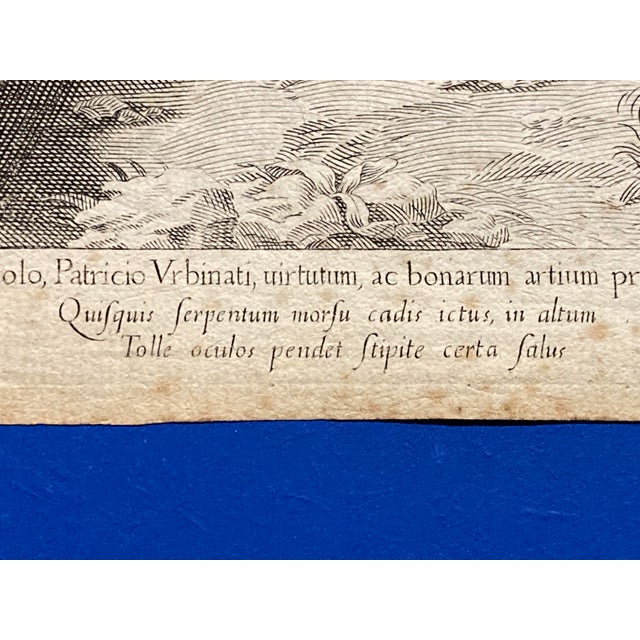 olo, Patricio Vrbinati, uirtutum, ac bonarum artium pr
Quiſquis ſerpentum morſu cadis ictus, in altum
Tolle oculos pendet ſtipite certa ſalus